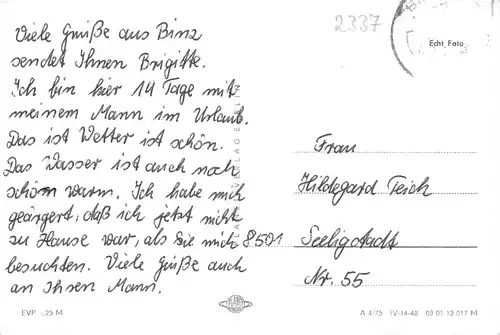 Viele Grüße aus Binz
sendet Ihnen Brigitte.
Ich bin hier 14 Tage mit
meinem Mann im Urlaub.
Das ist Wetter ist schön.
Das Wasser ist auch noch
schön warm. Ich habe mich
geärgert, daß ich jetzt nicht
zu Hause war, als Sie mich
besuchten. Viele Grüße auch
an Ihren Mann.
2337
Echt Foto
VERLAG BERLIN
Frau
Hildegard Teich
8501 Seeligstadt
Nr. 55
EVP -.25 M
PLANET
A 4/75 IV-14-48 03 01 12 017 M